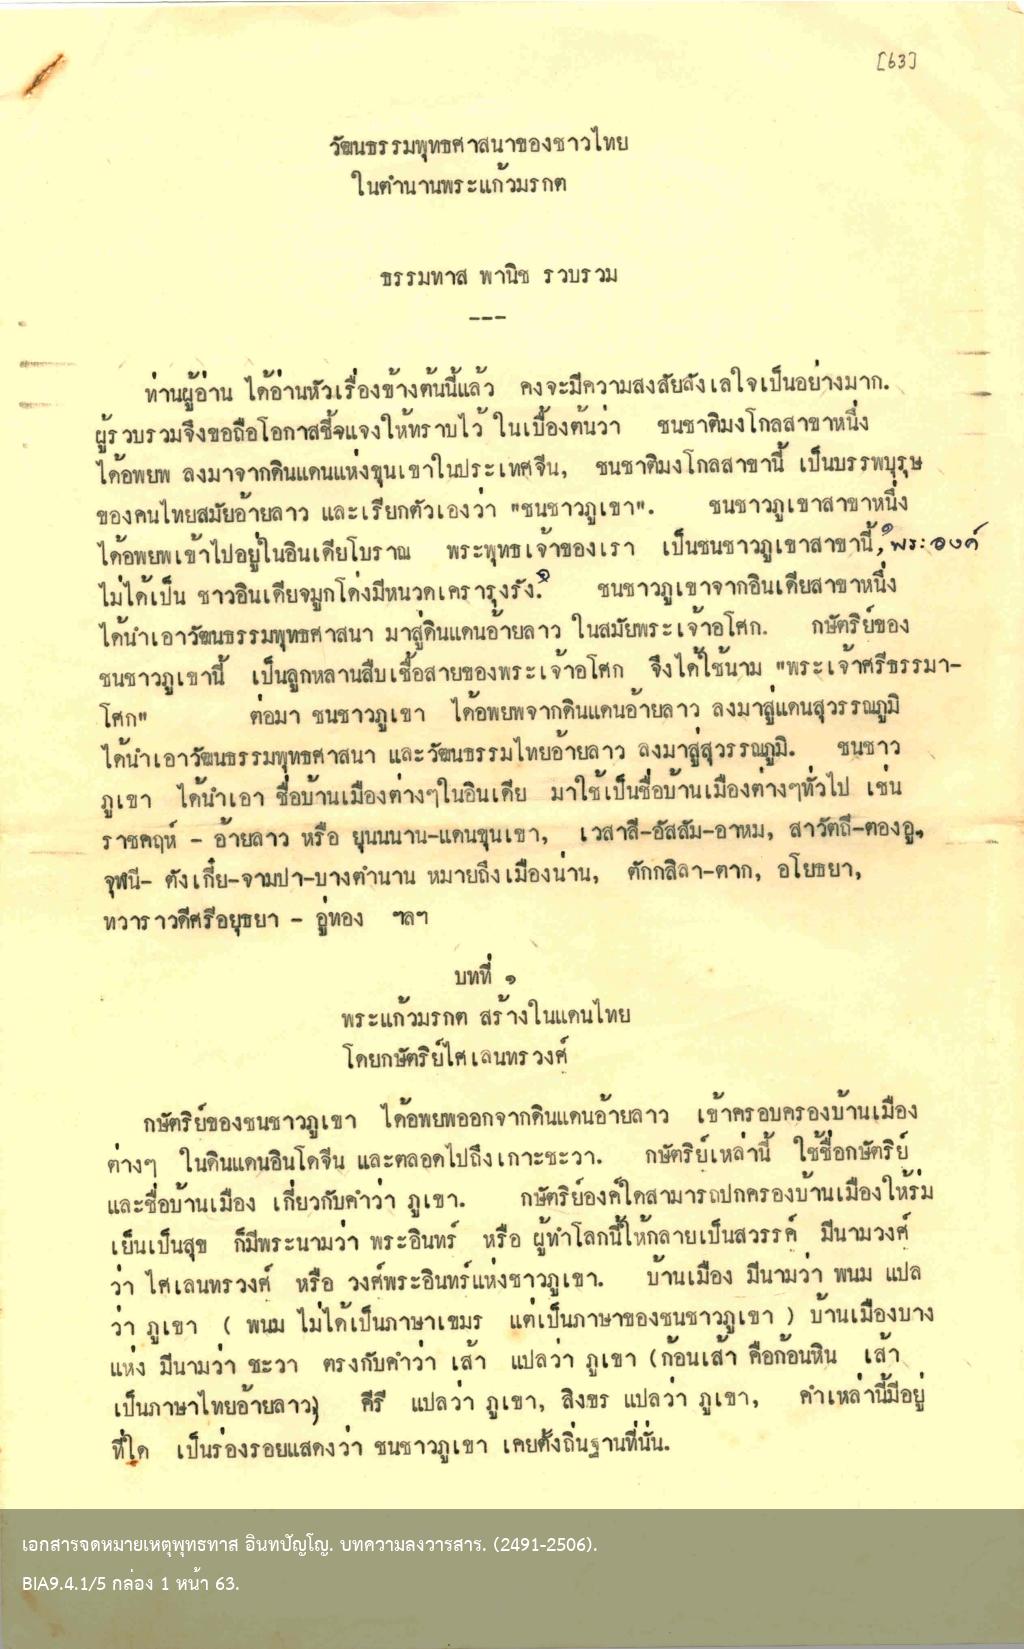 [63]
วัฒนธรรมพุทธศาสนาของชาวไทย
ในตำนานพระแก้วมรกต
ธรรมทาส พานิช รวบรวม
---
ท่านผู้อ่าน ได้อ่านหัวเรื่องข้างต้นนี้แล้ว คงจะมีความสงสัยลังเลใจเป็นอย่างมาก.
ผู้รวบรวมจึงขอถือโอกาสชี้แจงให้ทราบไว้ ในเบื้องต้นว่า ชนชาติมงโกลสาขาหนึ่ง
ได้อพยพ ลงมาจากดินแดนแห่งขุนเขาในประเทศจีน, ชนชาติมงโกลสาขานี้ เป็นบรรพบุรุษ
ของคนไทยสมัยอ้ายลาว และเรียกตัวเองว่า "ชนชาวภูเขา". ชนชาวภูเขาสาขาหนึ่ง
ได้อพยพเข้าไปอยู่ในอินเดียโบราณ พระพุทธเจ้าของเรา เป็นชนชาวภูเขาสาขานี้, พระองค์
ไม่ได้เป็น ชาวอินเดียจมูกโด่งมีหนวดเครารุงรัง. ชนชาวภูเขาจากอินเดียสาขาหนึ่ง
ได้นำเอาวัฒนธรรมพุทธศาสนา มาสู่ดินแดนอ้ายลาว ในสมัยพระเจ้าอโศก. กษัตริย์ของ
ชนชาวภูเขานี้ เป็นลูกหลานสืบเชื้อสายของพระเจ้าอโศก จึงได้ใช้นาม "พระเจ้าศรีธรรมา-
โศก" ต่อมา ชนชาวภูเขา ได้อพยพจากดินแดนอ้ายลาว ลงมาสู่แดนสุวรรณภูมิ
ได้นำเอาวัฒนธรรมพุทธศาสนา และวัฒนธรรมไทยอ้ายลาว ลงมาสู่สุวรรณภูมิ. ชนชาว
ภูเขา ได้นำเอา ชื่อบ้านเมืองต่างๆในอินเดีย มาใช้เป็นชื่อบ้านเมืองต่างๆทั่วไป เช่น
ราชคฤห์ - อ้ายลาว หรือ ยุนนนาน-แดนขุนเขา, เวสาลี-อัสสัม-อาหม, สาวัตถี-ตองอู,
จุฬนี- ตังเกี๋ย-จามปา-บางตำนาน หมายถึงเมืองน่าน, ตักกสิลา-ตาก, อโยธยา,
ทวาราวดีศรีอยุธยา - อู่ทอง ฯลฯ
บทที่ ๑
พระแก้วมรกต สร้างในแดนไทย
โดยกษัตริย์ไศเลนทรวงศ์
กษัตริย์ของชนชาวภูเขา ได้อพยพออกจากดินแดนอ้ายลาว เข้าครอบครองบ้านเมือง
ต่างๆ ในดินแดนอินโดจีน และตลอดไปถึงเกาะชะวา. กษัตริย์เหล่านี้ ใช้ชื่อกษัตริย์
และชื่อบ้านเมือง เกี่ยวกับคำว่า ภูเขา. กษัตริย์องค์ใดสามารถปกครองบ้านเมืองให้ร่ม
เย็นเป็นสุข ก็มีพระนามว่า พระอินทร์ หรือ ผู้ทำโลกนี้ให้กลายเป็นสวรรค์ มีนามวงศ์
ว่า ไศเลนทรวงศ์ หรือ วงศ์พระอินทร์แห่งชาวภูเขา. บ้านเมือง มีนามว่า พนม แปล
ว่า ภูเขา ( พนม ไม่ได้เป็นภาษาเขมร แต่เป็นภาษาของชนชาวภูเขา ) บ้านเมืองบาง
แห่ง มีนามว่า ชะวา ตรงกับคำว่า เส้า แปลว่า ภูเขา (ก้อนเส้า คือก้อนหิน เส้า
เป็นภาษาไทยอ้ายลาว) คีรี แปลว่า ภูเขา, สิงขร แปลว่า ภูเขา, คำเหล่านี้มีอยู่
ที่ใด เป็นร่องรอยแสดงว่า ชนชาวภูเขา เคยตั้งถิ่นฐานที่นั่น.
เอกสารจดหมายเหตุพุทธทาส อินทปัญโญ. บทความลงวารสาร. (2491-2506).
BIA9.4.1/5 กล่อง 1 หน้า 63.